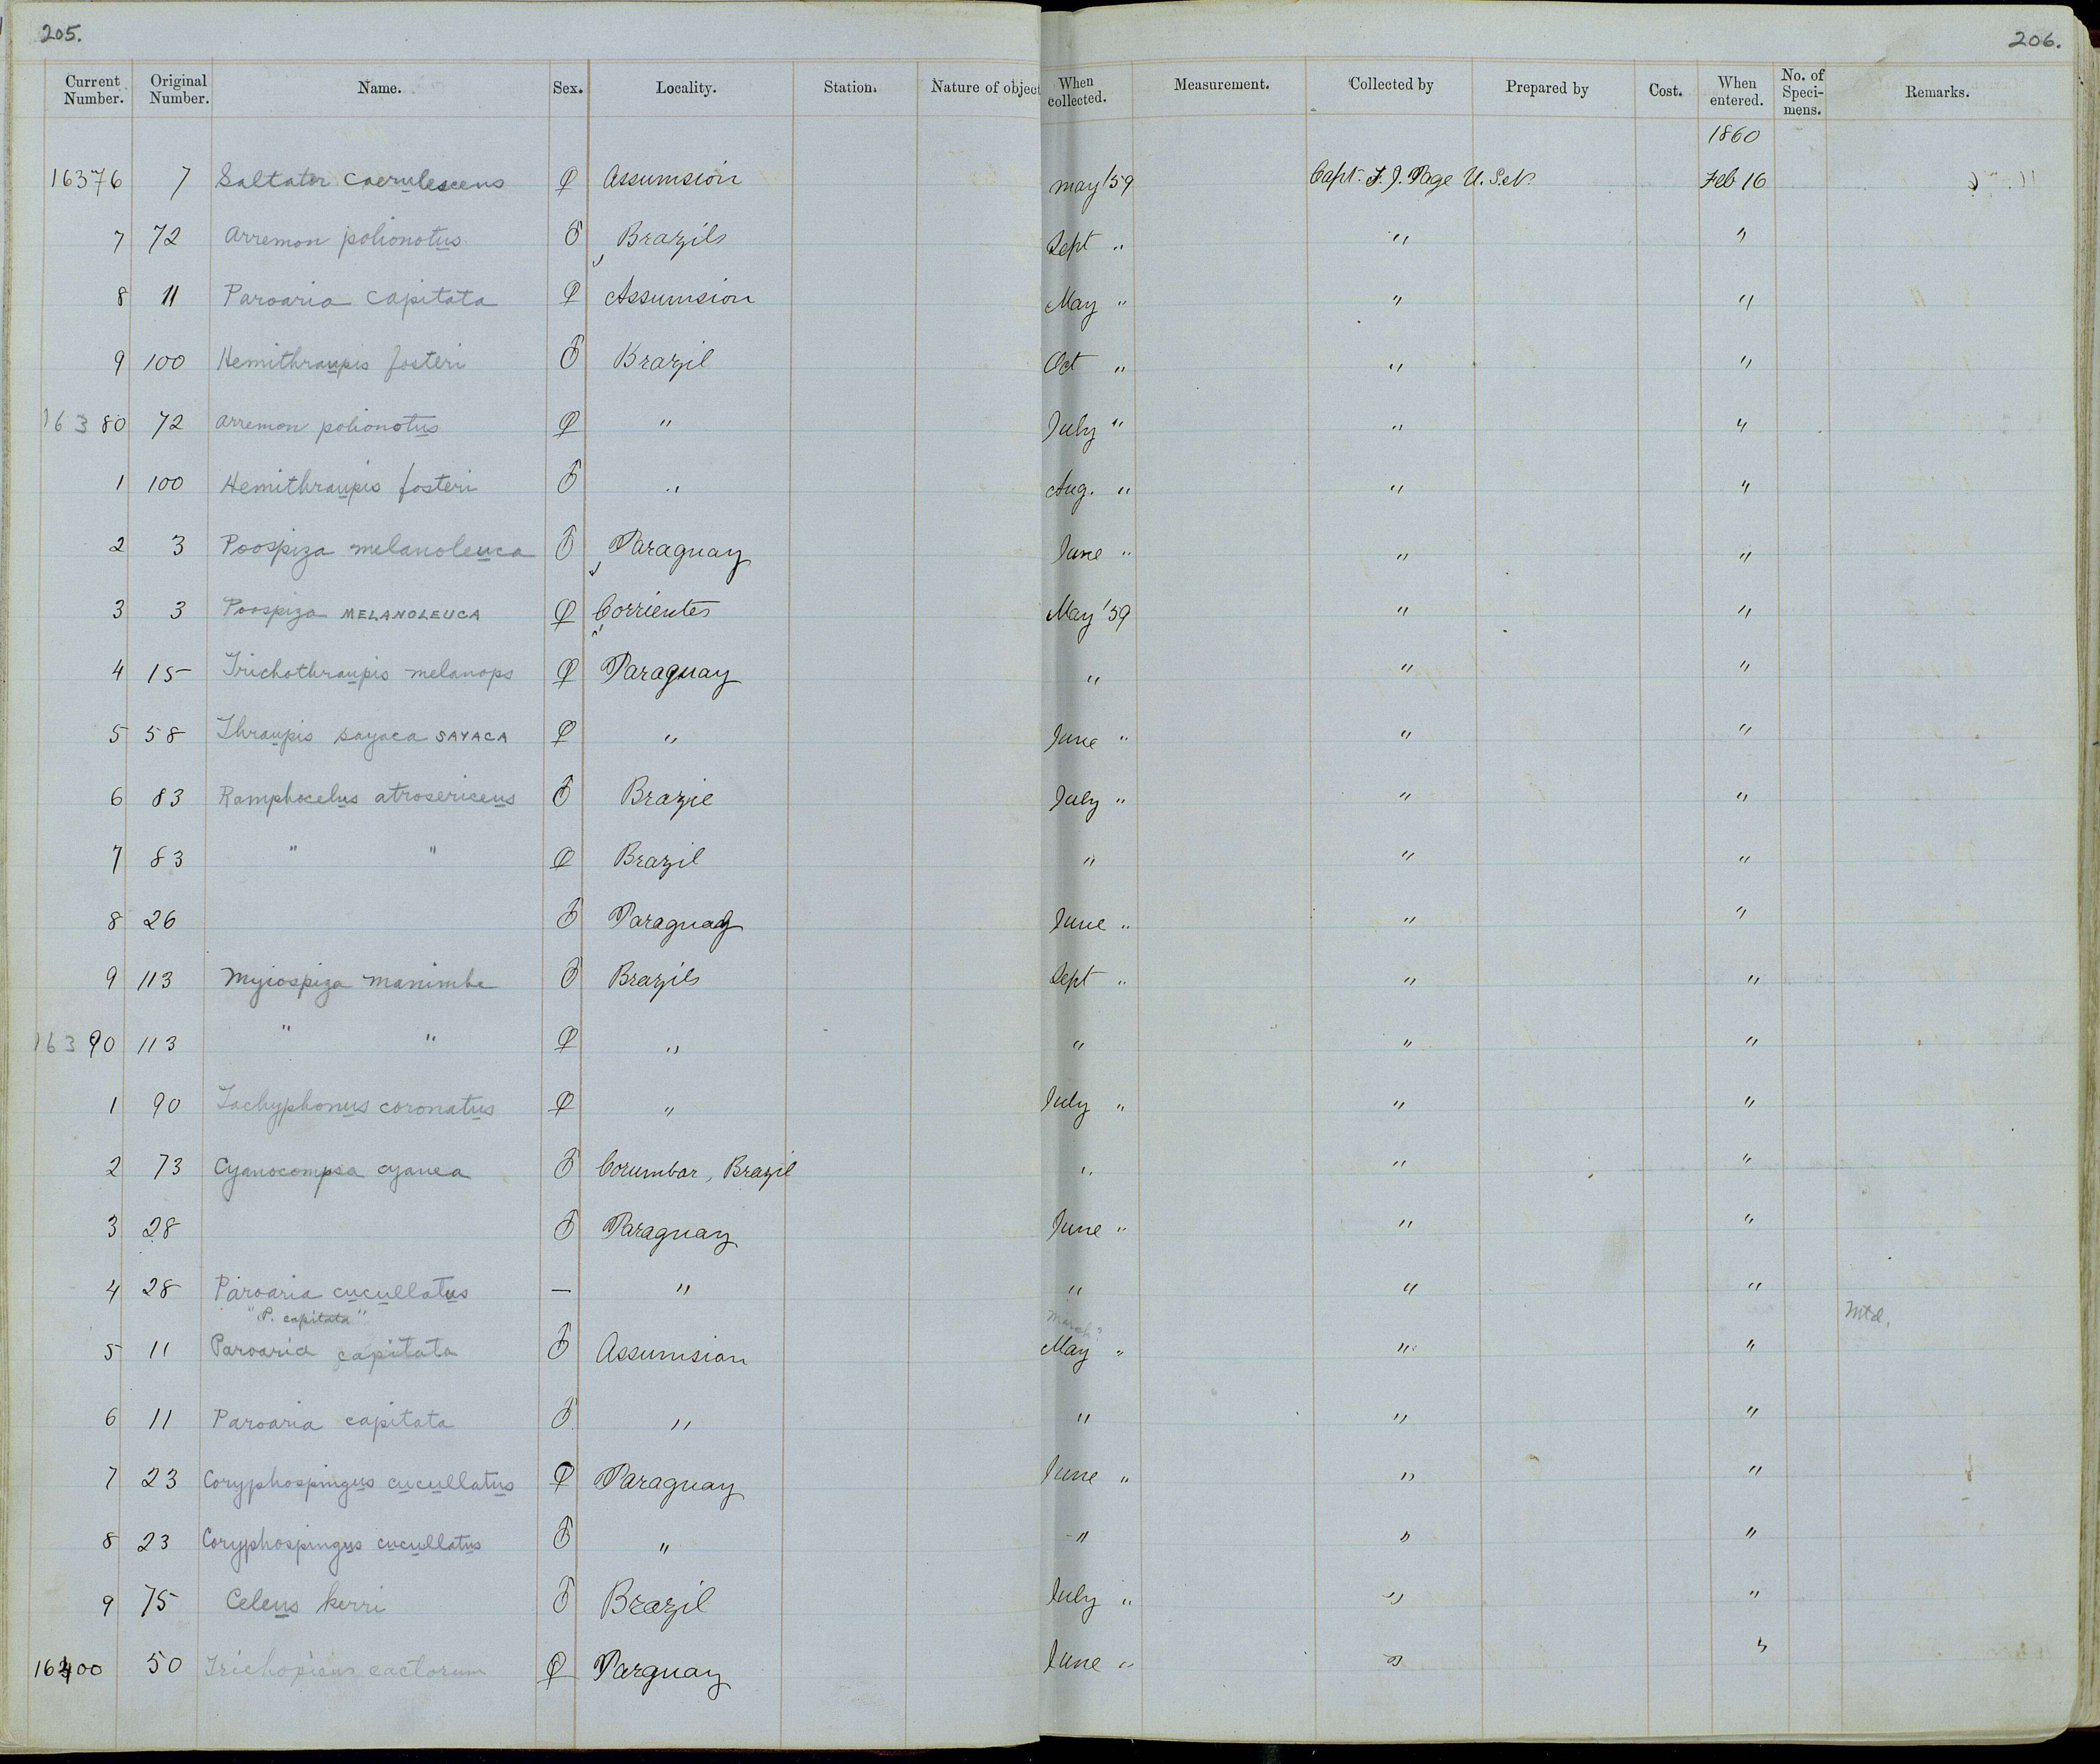 205.
206.
Current Number. Original Number. Name. Sex. Locality. Station. Nature of object When collected. Measurement. Collected by Prepared by Cost. When entered. No. of Speci-mens. Remarks.
1860
16376 7 Saltator caerulescens ♀ Assumsion May '59 Capt. T. J. Page U.S.N. Feb 16
7 72 Arremon polionotus ♂ Brazils Sept " " "
8 11 Paroaria capitata ♀ Assumsion May " " "
9 100 Hemithraupis fosteri ♂ Brazil Oct " " "
16380 72 Arremon polionotus ♀ " July " " "
1 100 Hemithraupis fosteri ♂ " Aug. " " "
2 3 Poospiza melanoleuca ♂ Paraguay June " " "
3 3 Poospiza MELANOLEUCA ♀ Corrientes May '59 " "
4 15 Trichothraupis melanops ♀ Paraguay " " "
5 58 Thraupis sayaca SAYACA ♀ " June " " "
6 83 Ramphocelus atrosericeus ♂ Brazil July " " "
7 83 " " ♀ Brazil " " "
8 26 ♂ Paraguay June " " "
9 113 Myiospiza manimbe ♂ Brazils Sept " " "
16390 113 " " ♀ " " " "
1 90 Tachyphonus coronatus ♀ " July " " "
2 73 Cyanocompsa cyanea ♂ Corumbar, Brazil " " "
3 28 ♂ Paraguay June " " "
4 28 Paroaria cucullatus — " " " "
"P. capitata" March? Mtd.
5 11 Paroaria capitata ♂ Assumsion May " " "
6 11 Paroaria capitata ♂ " " " "
7 23 Coryphospingus cucullatus ♀ Paraguay June " " "
8 23 Coryphospingus cucullatus ♂ " " " "
9 75 Celeus kerri ♂ Brazil July " " "
16400 50 Trichopicus cactorum ♀ Parguay June " " "